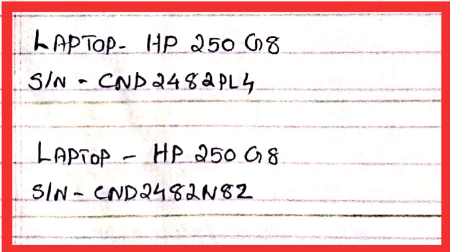 LAPTOP- HP 250 G8
S/N - CND2482PL4
LAPTOP - HP 250 G8
S/N- CND2482N8Z